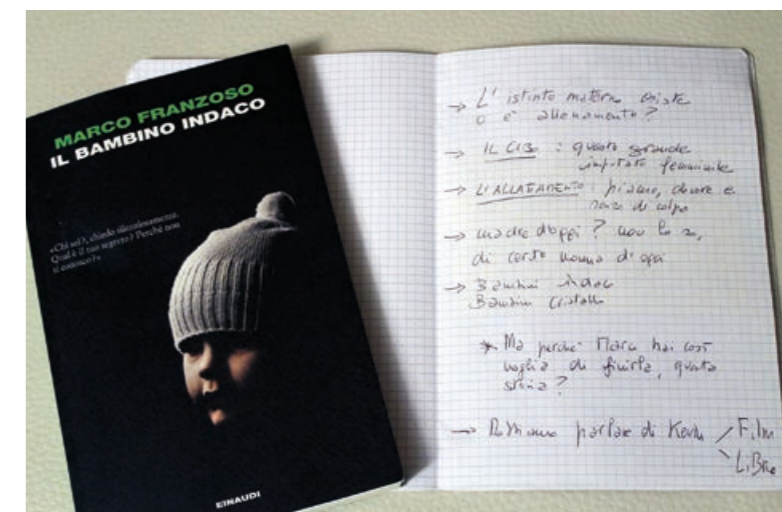 MARCO FRANZOSO
IL BAMBINO INDACO
«Chi sei?, chiedo silenziosamente.
Qual è il tuo segreto? Perché non
ti conosco?»
EINAUDI
→ L'istinto materno esiste
o è allenamento?
→ IL CIBO : questo grande
imputato femminile
→ L'ALLATTAMENTO : piacere, dovere e
senso di colpa
→ madre d'oggi? non lo so,
di certo nonna d'oggi
→ Bambini indaco
Bambini cristallo
* Ma perché Marco hai così
voglia di finirla, questa
storia?
→ parlare di Kevin Film
Libro